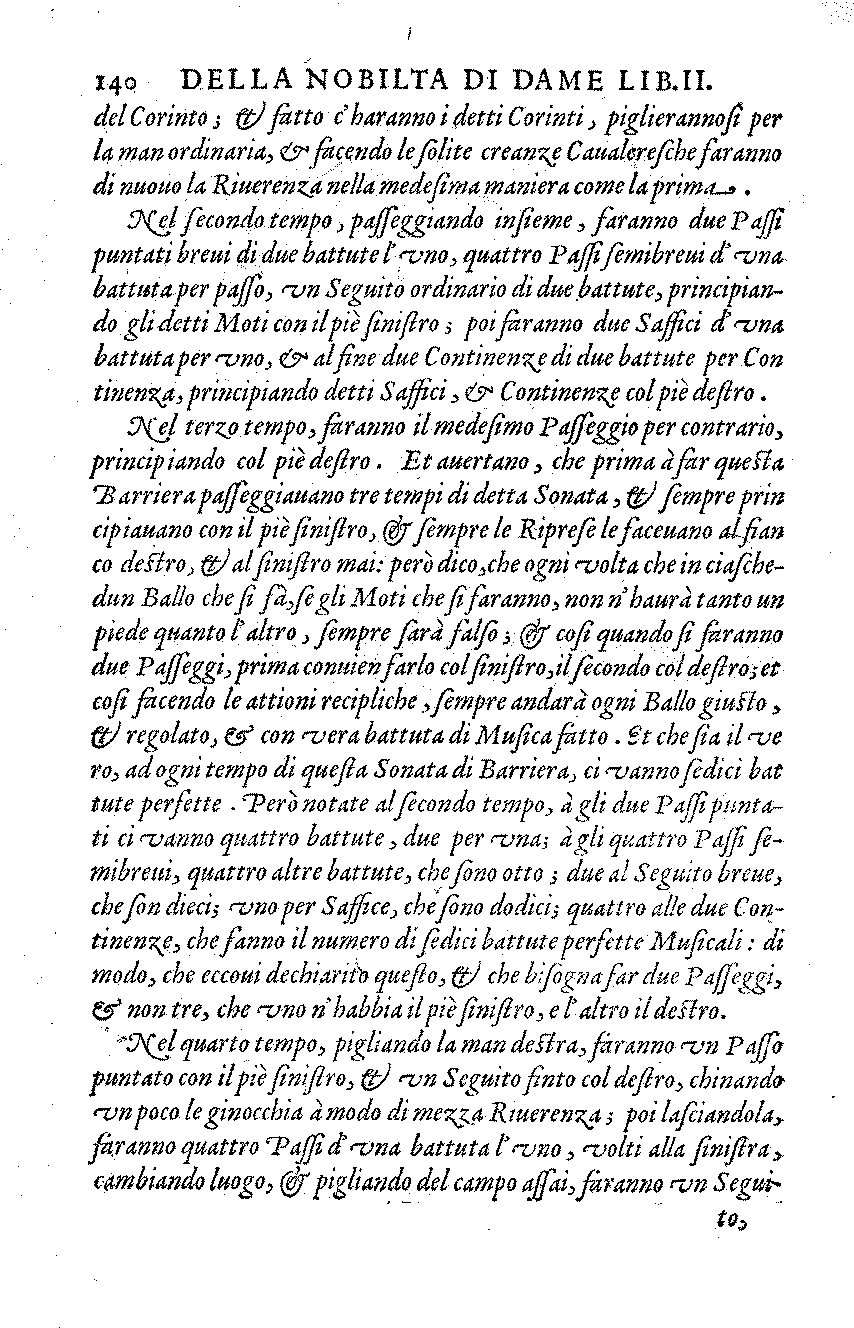 140 DELLA NOBILTA DI DAME LIB.II.
del Corinto; & fatto c'haranno i detti Corinti, piglierannoſi per
la man ordinaria, & facendo le ſolite creanze Caualereſche faranno
di nuouo la Riuerenza nella medeſima maniera come la prima.
Nel ſecondo tempo, paſſeggiando inſieme, faranno due Paſſi
puntati breui di due battute l'vno, quattro Paſſi ſemibreui d'vna
battuta per paſſo, vn Seguito ordinario di due battute, principian-
do gli detti Moti con il piè ſiniſtro; poi faranno due Saffici d'vna
battuta per vno, & al fine due Continenze di due battute per Con
tinenza, principiando detti Saffici, & Continenze col piè deſtro.
Nel terzo tempo, faranno il medeſimo Paſſeggio per contrario,
principiando col piè deſtro. Et auertano, che prima à far queſta
Barriera paſſeggiauano tre tempi di detta Sonata, & ſempre prin
cipiauano con il piè ſiniſtro, & ſempre le Ripreſe le faceuano al fian
co deſtro, & al ſiniſtro mai: però dico, che ogni volta che in ciaſche-
dun Ballo che ſi fà, ſe gli Moti che ſi faranno, non n'haurà tanto un
piede quanto l'altro, ſempre ſarà falſo; & coſi quando ſi faranno
due Paſſeggi, prima conuien farlo col ſiniſtro, il ſecondo col deſtro; et
coſi facendo le attioni recipliche, ſempre andarà ogni Ballo giuſto,
& regolato, & con vera battuta di Muſica fatto. Et che ſia il ve
ro, ad ogni tempo di queſta Sonata di Barriera, ci vanno ſedici bat
tute perfette. Però notate al ſecondo tempo, à gli due Paſſi punta-
ti ci vanno quattro battute, due per vna; à gli quattro Paſſi ſe-
mibreui, quattro altre battute, che ſono otto; due al Seguito breue,
che ſon dieci; vno per Saffice, che ſono dodici; quattro alle due Con-
tinenze, che fanno il numero di ſedici battute perfette Muſicali: di
modo, che eccoui dechiarito queſto, & che biſogna far due Paſſeggi,
& non tre, che vno n'habbia il piè ſiniſtro, e l'altro il deſtro.
Nel quarto tempo, pigliando la man deſtra, faranno vn Paſſo
puntato con il piè ſiniſtro, & vn Seguito finto col deſtro, chinando
vn poco le ginocchia à modo di mezza Riuerenza; poi laſciandola,
faranno quattro Paſſi d'vna battuta l'vno, volti alla ſiniſtra,
cambiando luogo, & pigliando del campo aſſai, faranno vn Segui-
to,